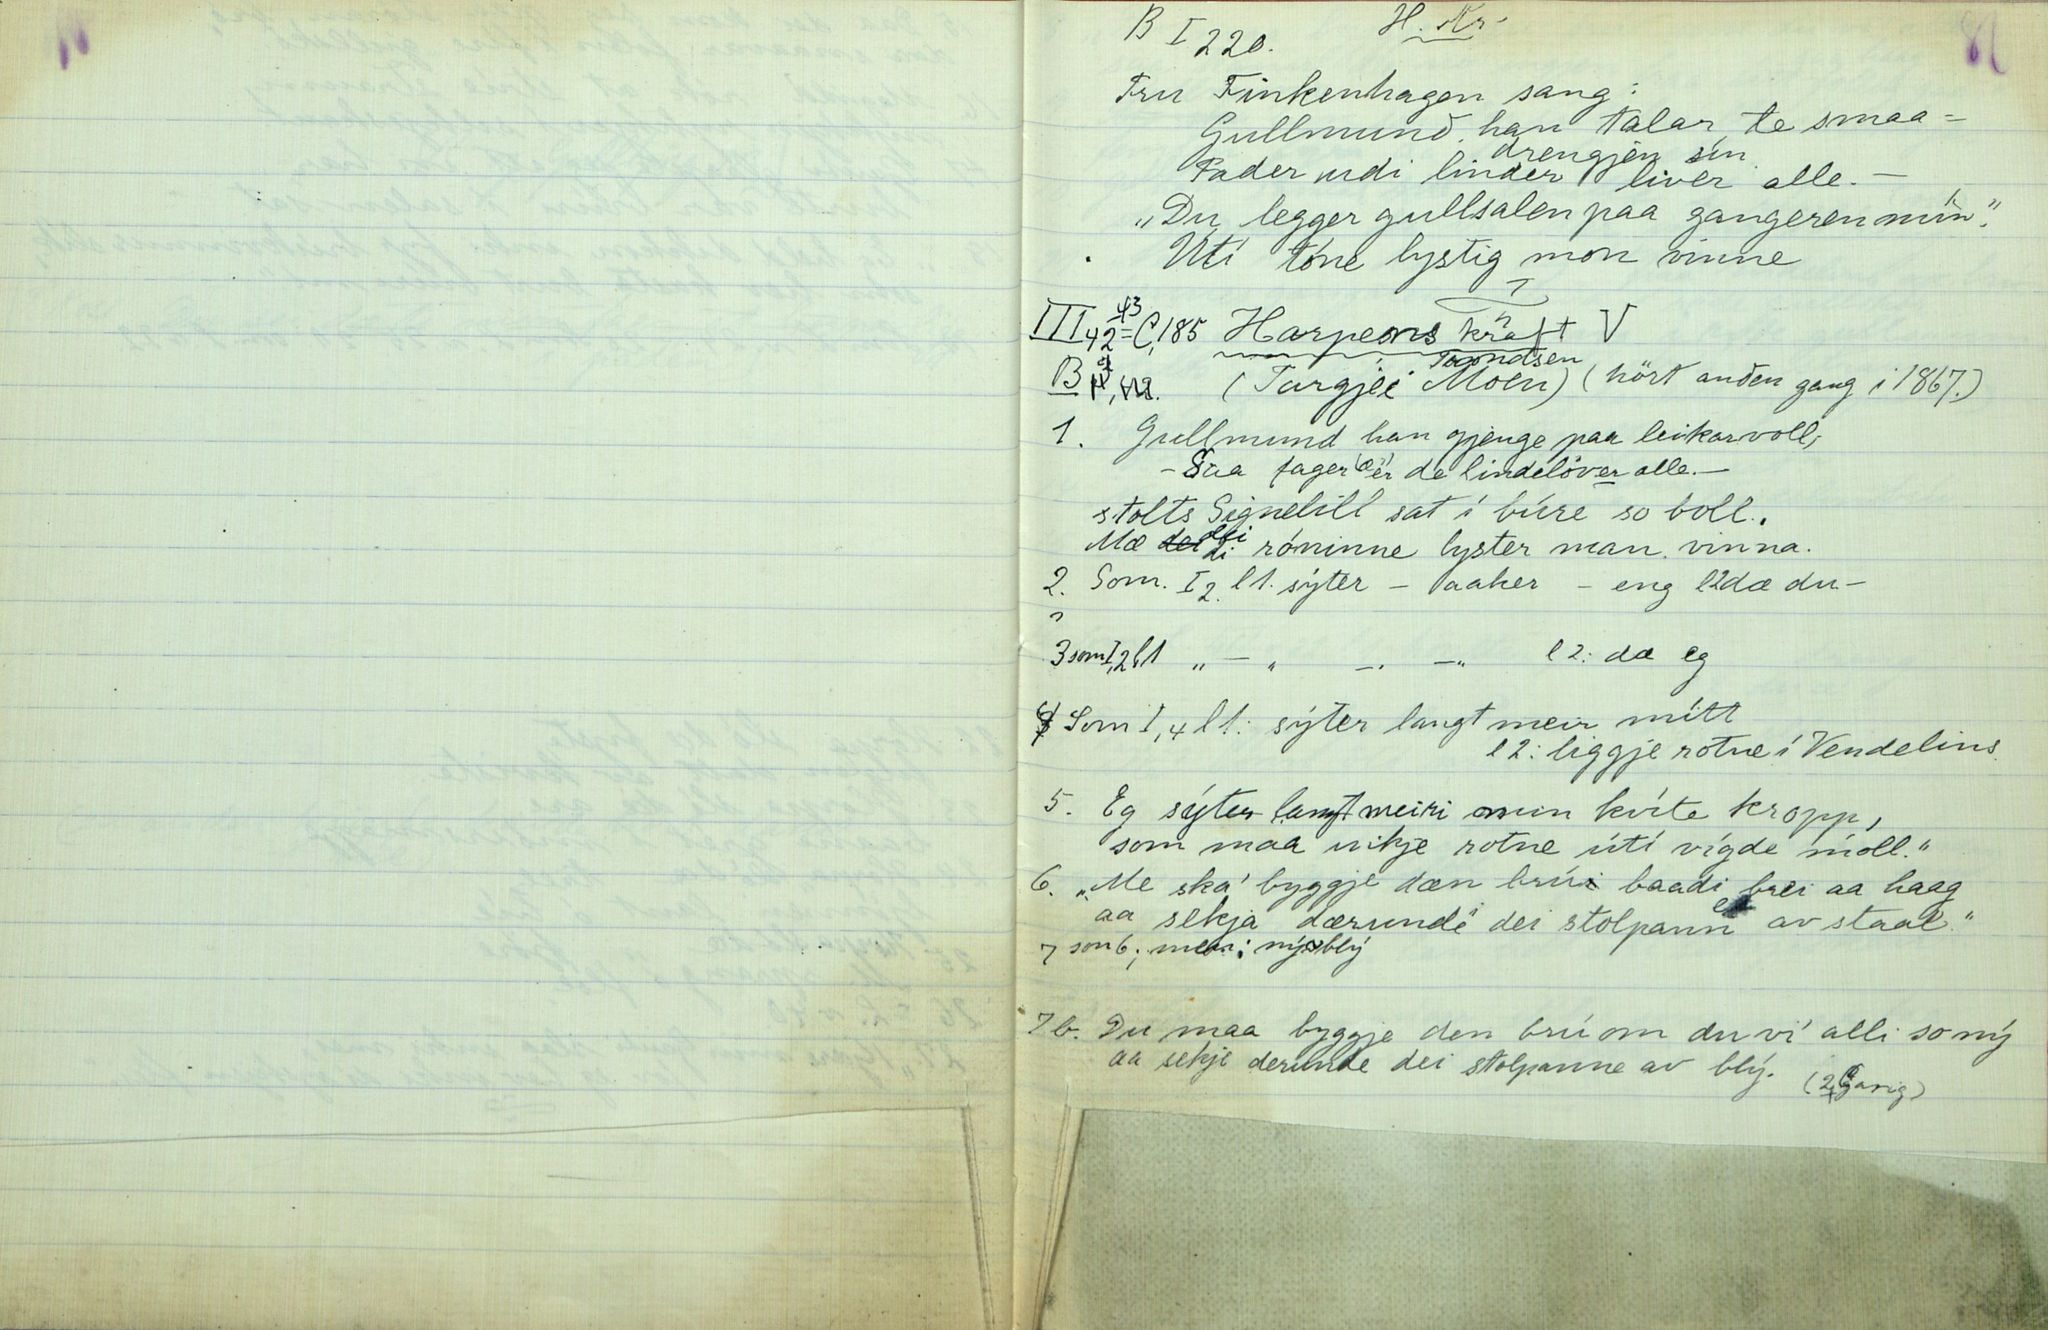 B I 220. H. Kr.
Fru Finkenhagen sang:
Gullmund han talar te smaa=
drengjen sín
Fader udi linder liver alle. —
"Du legger gullsalen paa gangeren mín".
Utí tóne lystig mon vinne
III 42 43 = C, 185 Harpens kraft V
B (Targjei Taamdsen Moen) (hört anden gang i 1867.)
1. Gullmund han gjenge paa leikarvoll,
— Saa fager er de lindelöver alle. —
stolts Signelill sat í búre so boll.
Mæ dei di róninne lyster man vinna.
2. Som. I 2. l 1. sýter — aaker — eng l2 dæ du —
3 som I, 2 l1 „ — „ — „ — „ l 2: dæ eg
4 Som I, 4 l 1: sýter langt meir mítt
l 2: liggje rotne í Vendelins.
5. Eg sýter langt meiri min kvíte kropp,
som maa ikje rotne útí vígde moll."
6. "Me ska' byggje dæn brúi baadi brei aa haag
aa sekja dærunde dei stolpann av staal."
7 som 6; men: ný blý
7 b. Du maa byggje den brú om du ví' alli so ný
aa sekje derunde dei stolpanne av blý. (2 gang)